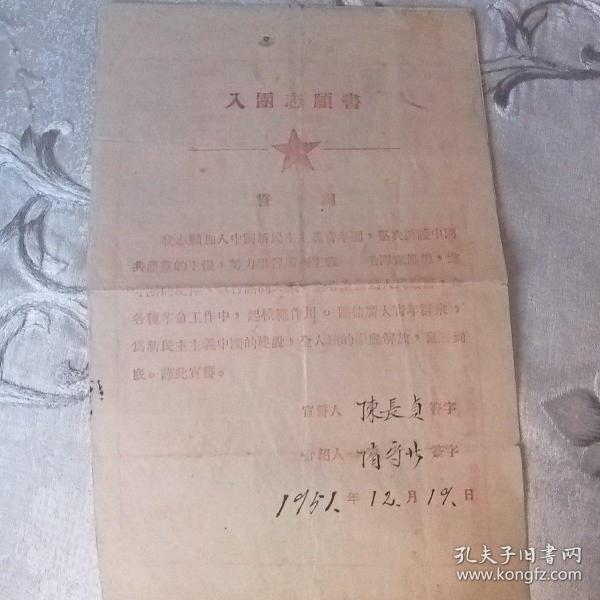 入團志願書
誓詞
我志願加入中國新民主主義青年團，堅決擁護中國
共產黨的主張，努力學習 毛澤東思想，
各種革命工作中，起模範作用。團結廣大青年群衆，
爲新民主主義中國的建設，全人類的徹底解放，奮鬥到
底。謹此宣誓。
宣誓人 陳長貞 簽字
介紹人 隋守 簽字
1951.年12.月19.日
孔夫子旧书网
www.kongfz.com